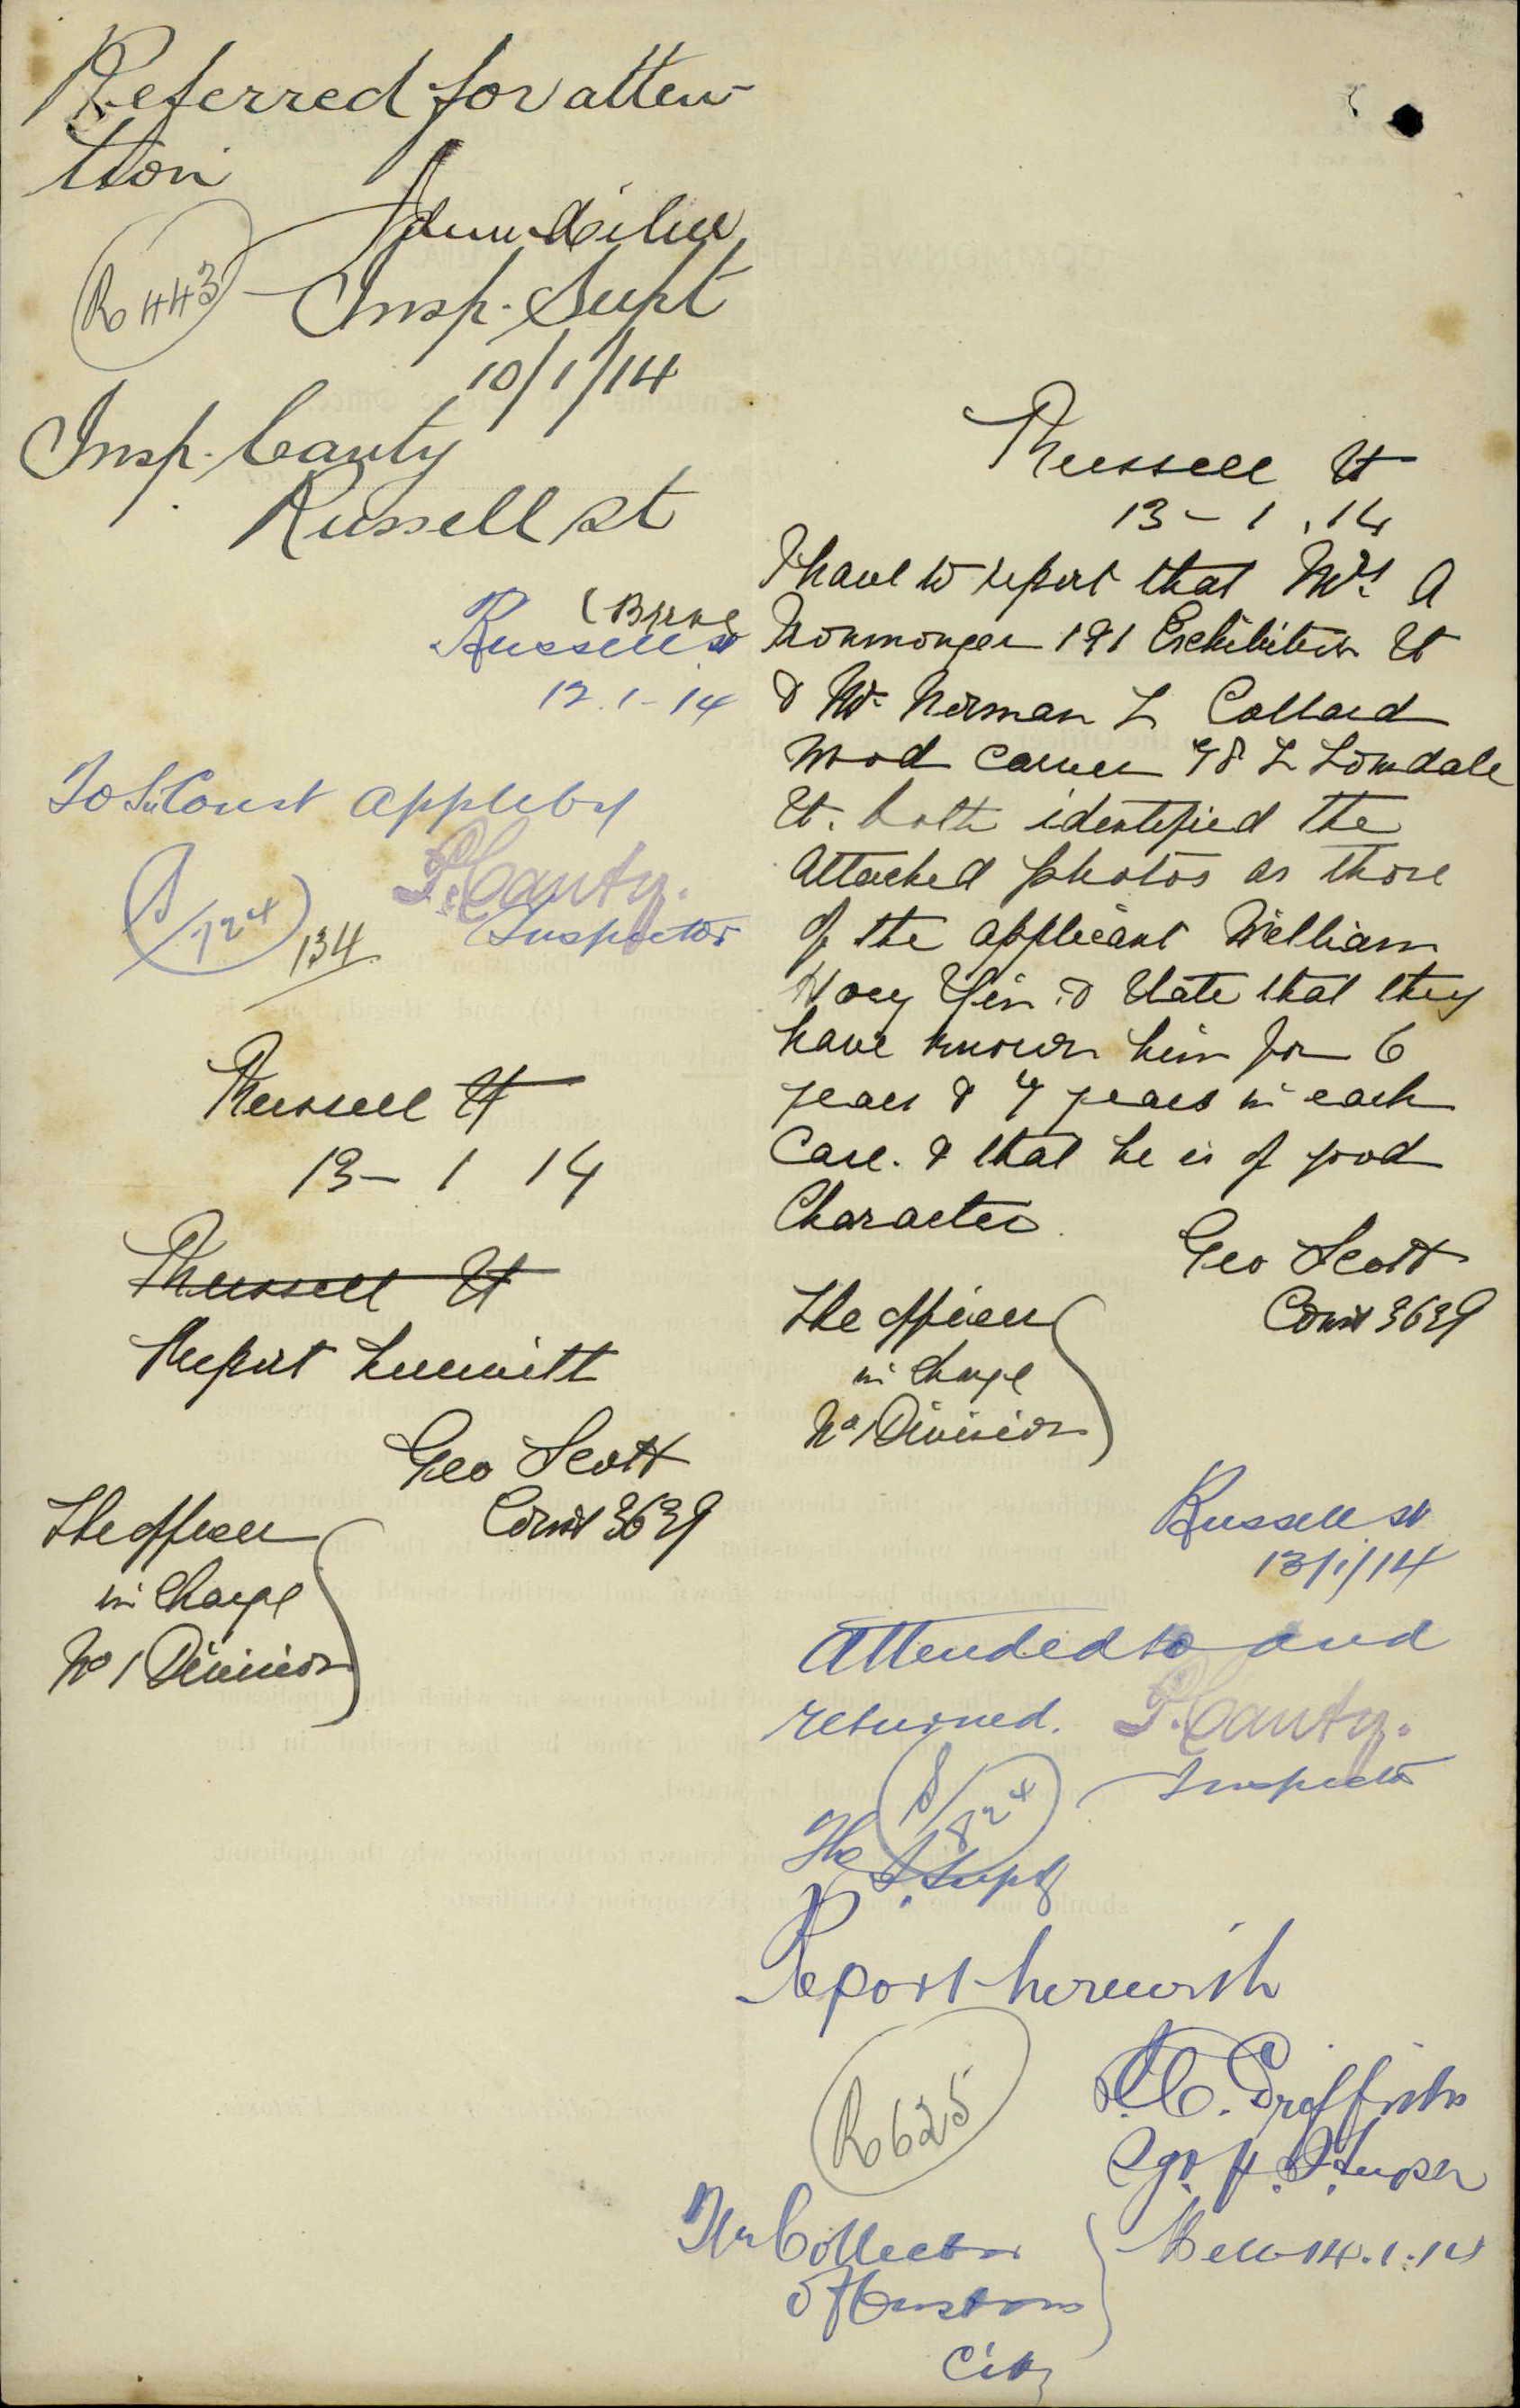 Referred for atten-
tion
Insp. Supt
R 443
10/1/14
Insp. Canty
Russell St
Russell St
12.1-14
To S. Const Appleby
P. Canty.
Inspector
134
Russell St
13-1 14
Russell St
Report herewith
Geo Scott
Const 3639
The Officer
in Charge
No 1 Division
Russell St
13-1.14
I have to report that Mrs. A
Ironmonger 191 Exhibition St
& Mr. Norman L Collard
Wood carver 98 L Lonsdale
St. both identified the
attached photos as those
of the applicant William
Hoey Yin & State that they
have known him for 6
years & 4 years in each
Case. & that he is of good
Character.
Geo Scott
Const 3639
The Officer
in Charge
No 1 Division
Russell St
13/1/14
Attended to and
returned. P. Canty.
Inspector
The
Supt
Report herewith
R 625
Griffiths
The Collector
of Customs
City
Melb 14.1.14